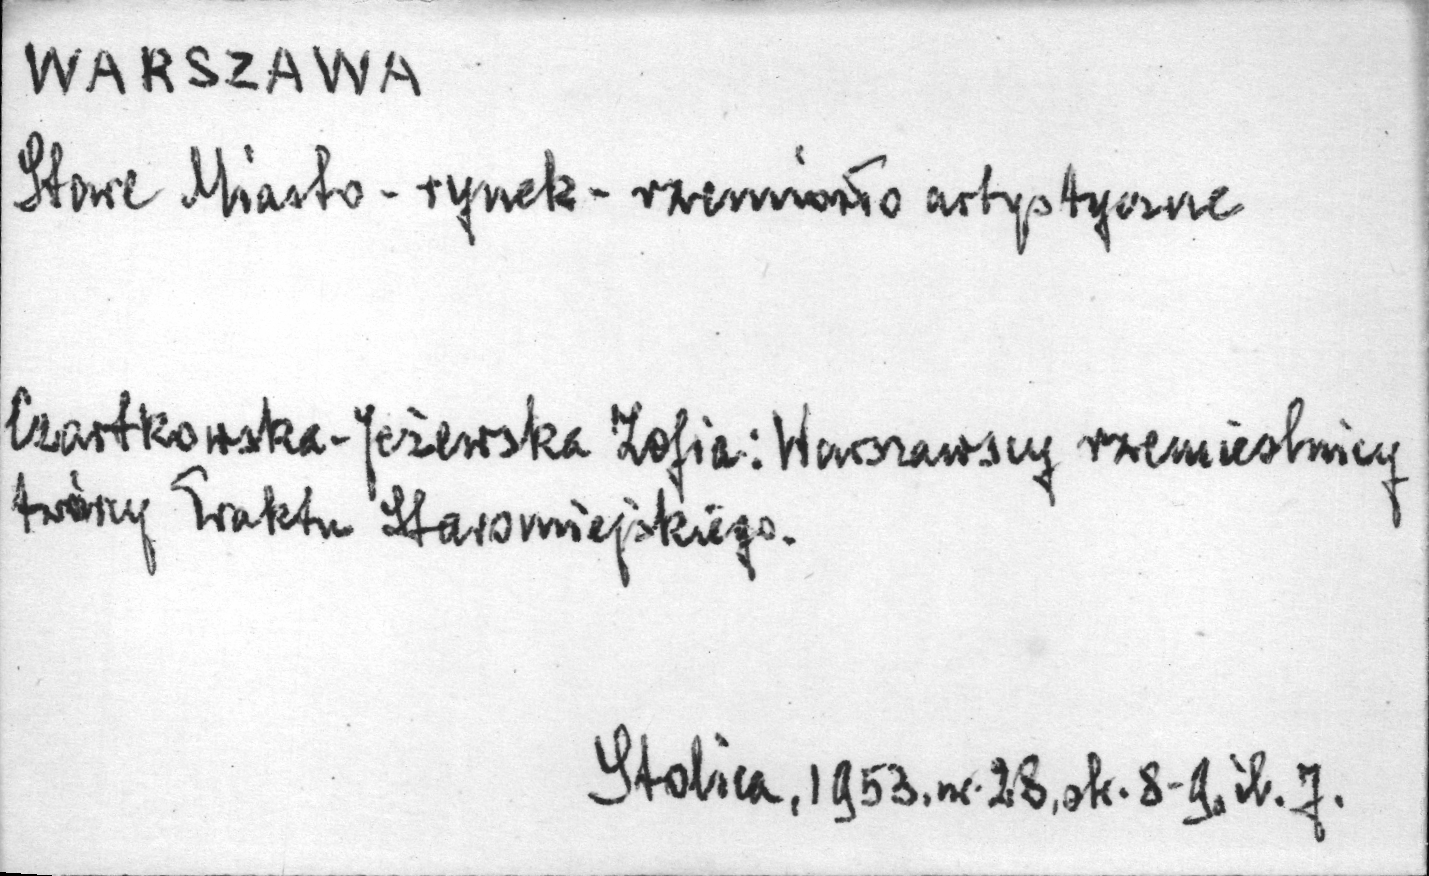 WARSZAWA
Stare Miasto - rynek - rzemiosło artystyczne
Czartkowska-Jeżewska Zofia: Warszawscy rzemieślnicy
twórcy Traktu Staromiejskiego.
Stolica, 1953. nr. 28, str. 8-9, il. 7.